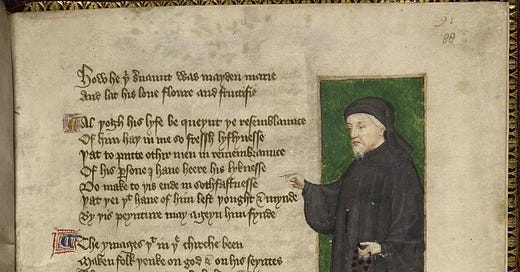 91
88
How he yͤ ẜuaunt was mayden marie
And lat his loue floure and fructifie
Al yogh his lyfe be queynt ye resemblaunce
Of him haþ in me so fressh lyflynesse
Yat to putte othir men in remembraunce
Of his ꝑsone I haue heere his lyknesse
Do make to yis ende in sothfastnesse
Yat yei yͭ haue of him lest yought & mynde
By yis peynture may ageyn him fynde
The ymages yͭ in yͤ chirche been
Maken folk yenke on god & on his seyntes